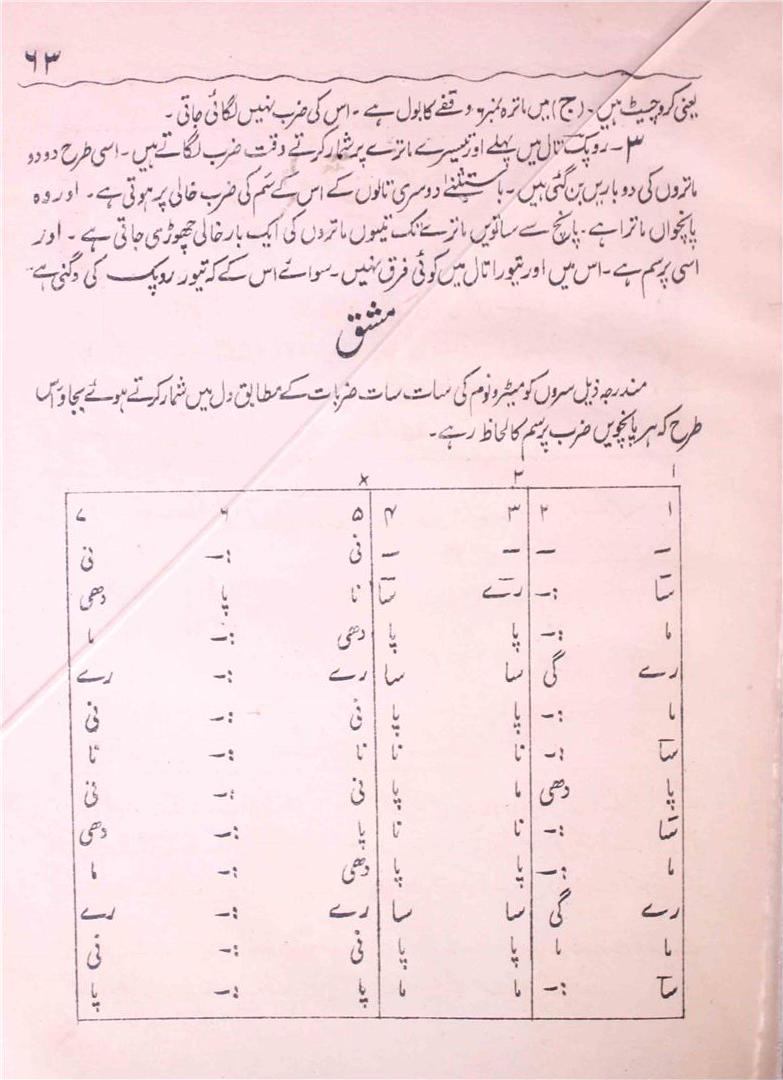 ۶۳
یعنی کروچیٹ ہیں۔ (ج) میں ماترہ نمبر ۶ وقفے کا بول ہے۔ اس کی ضرب نہیں لگائی جاتی۔
۳۔ روپک تال میں پہلے اور تیسرے ماترے پر شمار کرتے وقت ضرب لگاتے ہیں۔ اسی طرح دو دو
ماتروں کی دو باریں بن گئی ہیں۔ باستثنیٰ دوسری تالوں کے اس کے سَم کی ضرب خالی پر ہوتی ہے۔ اور وہ
پانچواں ماترا ہے۔ پانچ سے ساتویں ماترے تک تینوں ماتروں کی ایک بار خالی چھوڑی جاتی ہے۔ اور
اسی پر سم ہے۔ اس میں اور تیورا تال میں کوئی فرق نہیں۔ سوائے اس کے کہ تیور روپک کی دگنی ہے۔
مشق
مندرجہ ذیل سروں کو میٹرونوم کی سات سات ضربات کے مطابق دل میں شمار کرتے ہوئے بجاؤ اس
طرح کہ ہر پانچویں ضرب پر سم کا لحاظ رہے۔
۱ ۲ x
۱ ۲ ۳ ۴ ۵ ۶ ۷
– – – – نی –: نی
سا –: رے سا نا پہ دھی
ما –: پہ پہ دھی –: ما
رے گی سا سا رے –: رے
ما –: پہ پہ نی –: نی
سا –: نا نا پہ نا –: نا
پہ دھی ما پہ نی –: نی
سا –: نا نا پہ –: دھی
ما –: پہ پہ دھی –: ما
رے گی سا سا رے –: رے
ما ما پہ پہ نی –: نی
سا –: ما ما پہ –: پہ